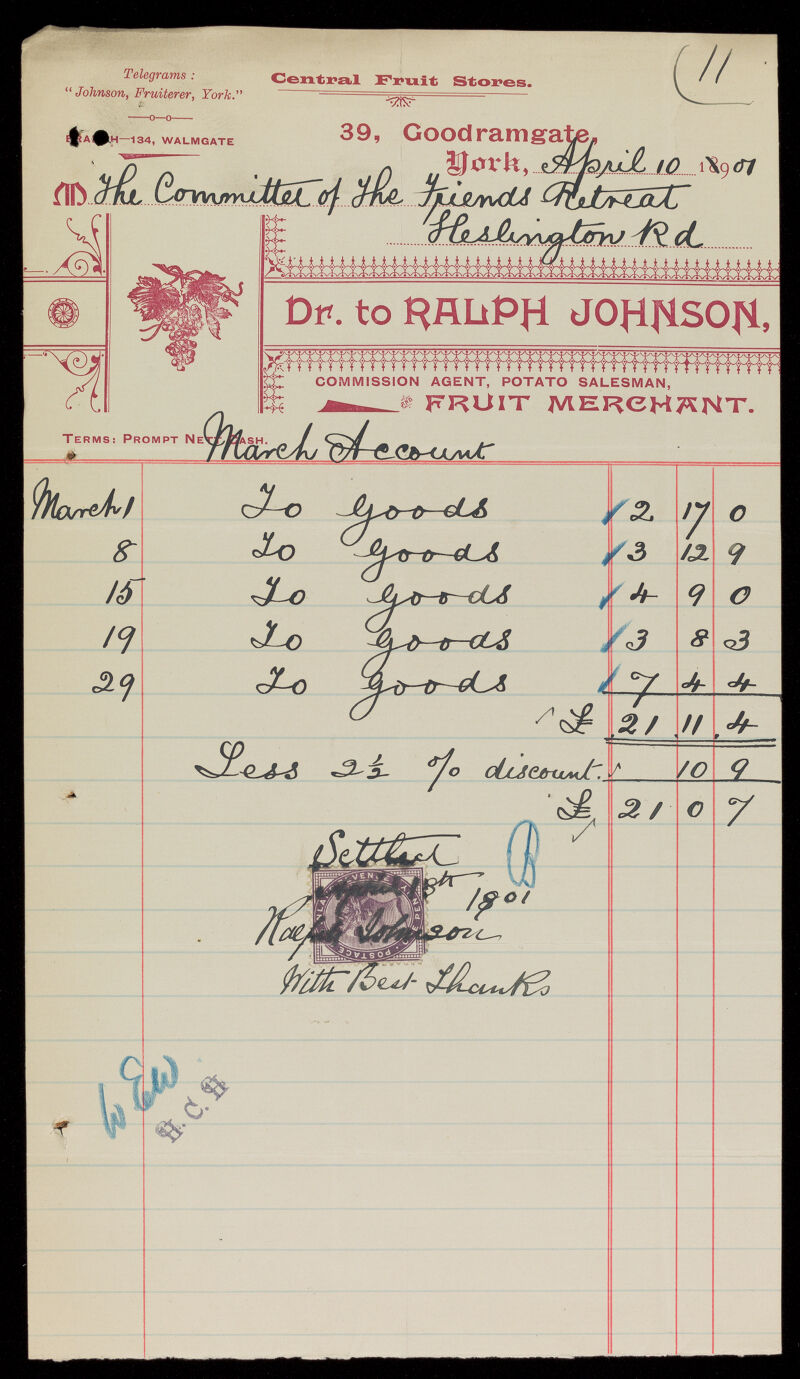 11
Telegrams :
"Johnson, Fruiterer, York."
Central Fruit Stores.
BRANCH—134, WALMGATE
39, Goodramgate,
York, April 10 1901
M The Committee of The Friends Retreat
Heslington Rd
Dr. to RALPH JOHNSON,
COMMISSION AGENT, POTATO SALESMAN,
FRUIT MERCHANT.
TERMS: PROMPT NETT CASH.
March Account
March 1 To Goods 2 17 0
8 To Goods 3 12 9
15 To Goods 4 9 0
19 To Goods 3 8 3
29 To Goods 7 4 4
£ 21 11 4
Less 2½ % discount. 10 9
£ 21 0 7
Settled
B
April 18th 1901
Ralph Johnson
POSTAGE
With Best Thanks
W E W
H. C. H